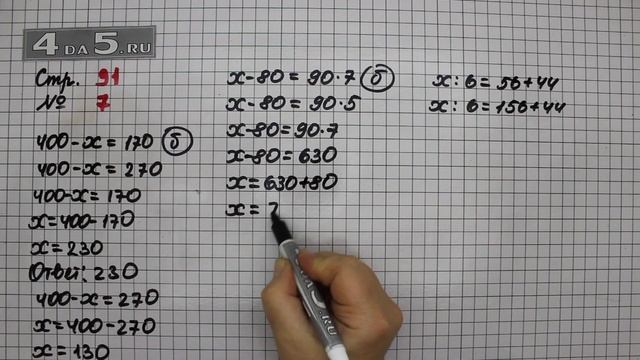 4DA5.RU
Стр. 91
№ 7
400-x=170 б
400-x=270
400-x=170
x=400-170
x=230
Ответ: 230
400-x=270
x=400-270
x=130
x-80=90·7 б
x-80=90·5
x-80=90·7
x-80=630
x=630+80
x=
x:6=56+44
x:6=156+44